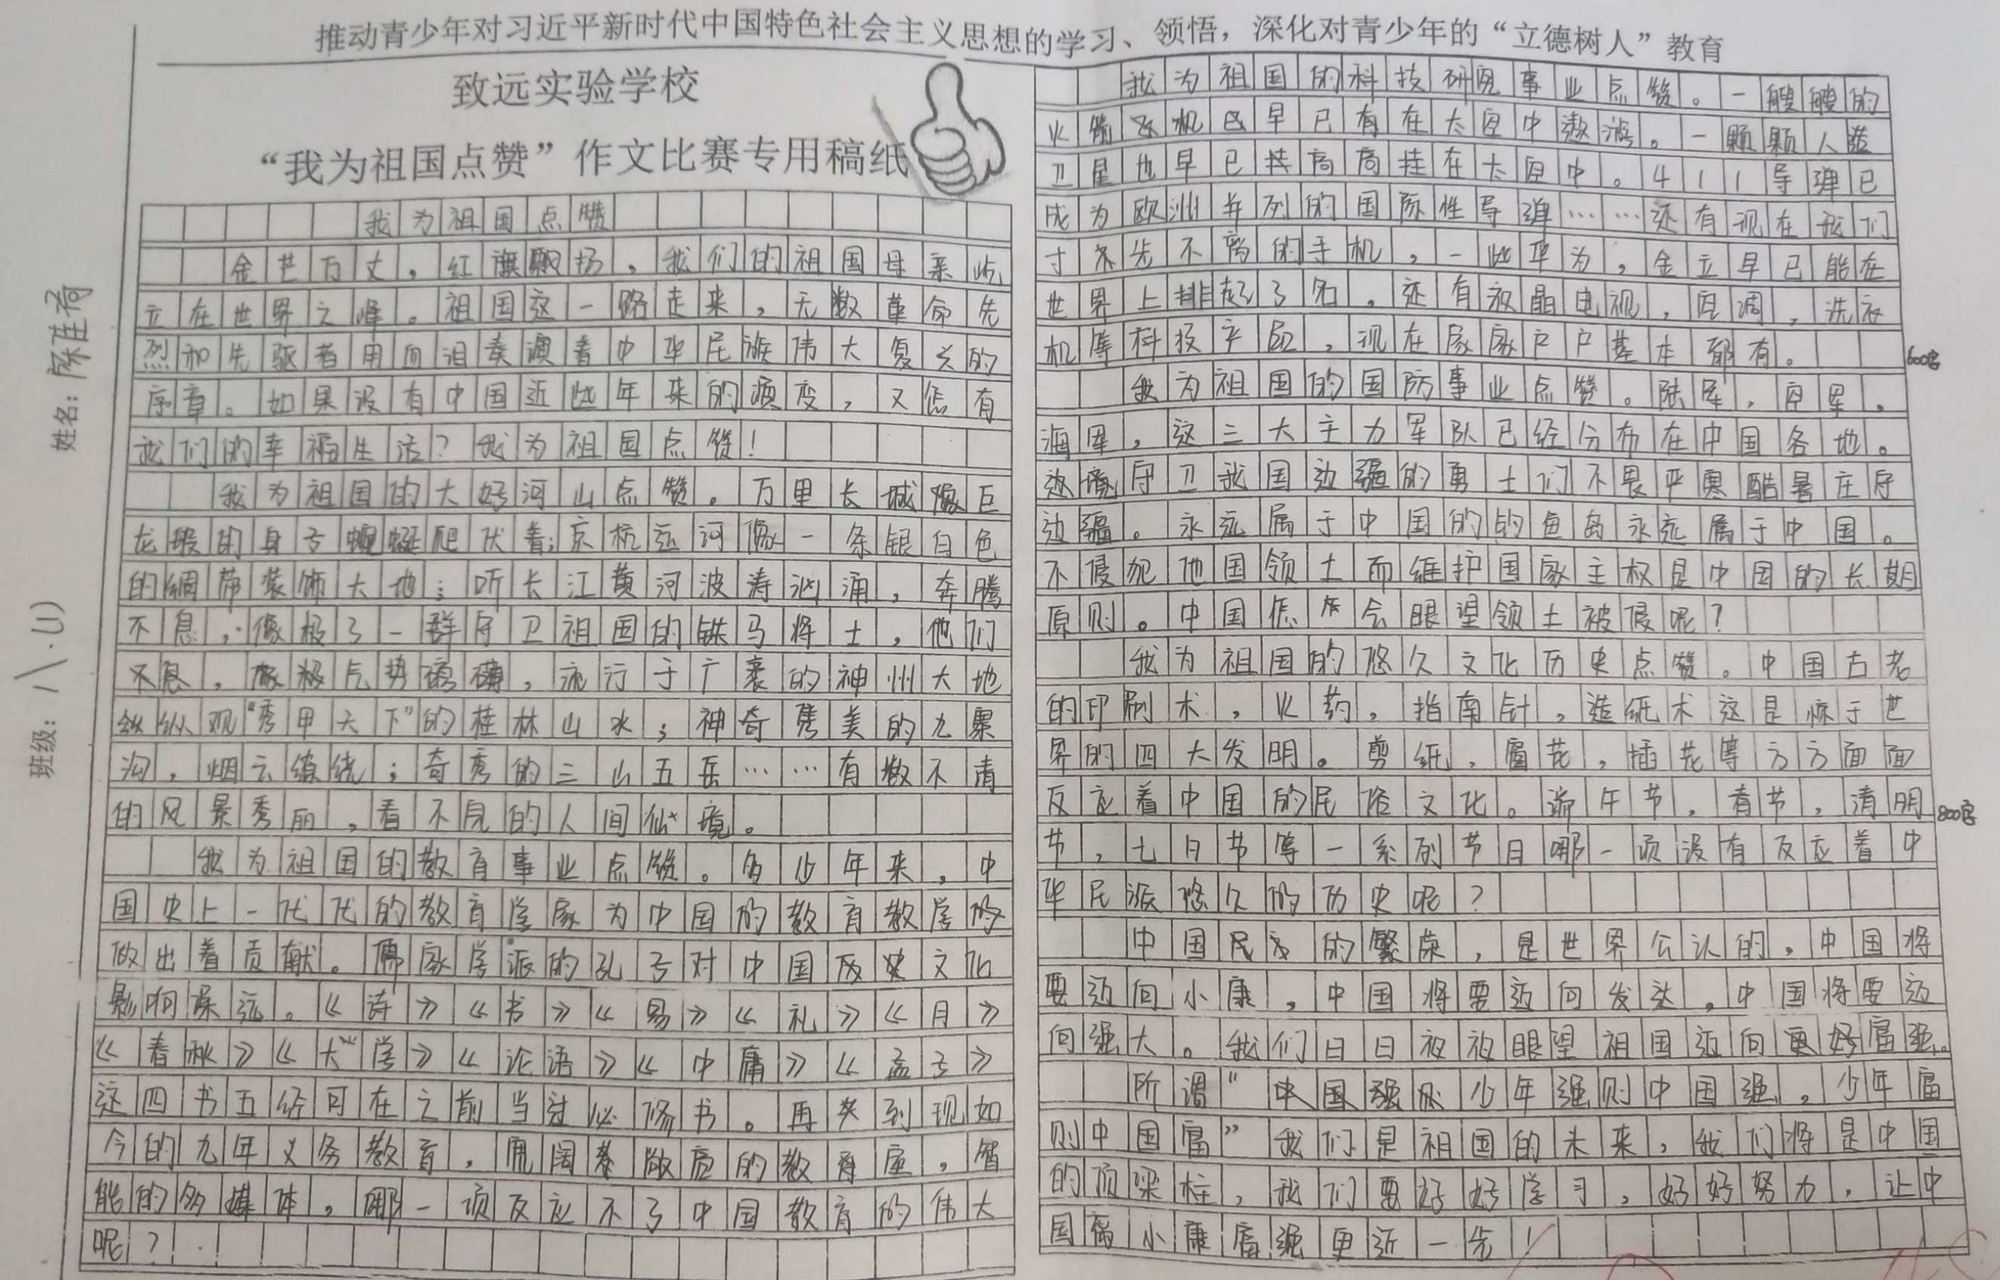 推动青少年对习近平新时代中国特色社会主义思想的学习、领悟，深化对青少年的“立德树人”教育
致远实验学校
“我为祖国点赞”作文比赛专用稿纸
班级：八.(1)
姓名：陈佳荷
我为祖国点赞
金芒万丈，红旗飘扬，我们的祖国母亲屹
立在世界之峰。祖国这一路走来，无数革命先
烈和先驱者用血泪奏演着中华民族伟大复兴的
序章。如果没有中国近些年来的演变，又怎有
我们的幸福生活？我为祖国点赞！
我为祖国的大好河山点赞。万里长城像巨
龙般的身子蜿蜒爬伏着；京杭运河像一条银白色
的绸带装饰大地；听长江黄河波涛汹涌，奔腾
不息，像极了一群守卫祖国的铁马将士，他们
不息，气势磅礴，流行于广袤的神州大地
纵观“秀甲天下”的桂林山水；神奇隽美的九寨
沟，烟云缭绕；奇秀的三山五岳……有数不清
的风景秀丽，看不见的人间仙境。
我为祖国的教育事业点赞。多少年来，中
国史上一代代的教育学家为中国的教育教学的
做出着贡献。儒家学派的孔子对中国历史文化
影响深远。《诗》《书》《易》《礼》《月》
《春秋》《大学》《论语》《中庸》《孟子》
这四书五经可在之前当过必修书。再来到现如
今的九年义务教育，宽阔敞亮的教育屋，智
能的多媒体，哪一项反应不了中国教育的伟大
呢？
我为祖国的科技研究事业点赞。一艘艘的
火箭飞机已早已有在太空中遨游。一颗颗人造
卫星也早已挂高高挂在太空中。411导弹已
成为欧洲并列的国际性导弹……还有现在我们
寸不先不离的手机，一些华为，金立早已能在
世界上排起了名。还有液晶电视，空调，洗衣
机等科技产品，现在家家户户基本都有。
600字
我为祖国的国防事业点赞。陆军，空军，
海军，这三大主力军队已经分布在中国各地。
边境守卫我国边疆的勇士们不畏严寒酷暑庄守
边疆。永远属于中国的钓鱼岛永远属于中国。
不侵犯他国领土而维护国家主权是中国的长期
原则。中国怎么会眼望领土被侵呢？
我为祖国的悠久文化历史点赞。中国古老
的印刷术，火药，指南针，造纸术这是惊于世
界的四大发明。剪纸，窗花，插花等方方面面
反应着中国的民俗文化。端午节，春节，清明
800字
节，七日节等一系列节日哪一项没有反应着中
华民派悠久的历史呢？
中国民族的繁荣，是世界公认的，中国将
要迈向小康，中国将要迈向发达，中国将要迈
向强大。我们日日夜夜眼望祖国迈向更好富强。
所谓“少年强则中国强，少年富
则中国富”我们是祖国的未来，我们将是中国
的顶梁柱，我们要好好学习，好好努力，让中
国离小康富强更近一步！